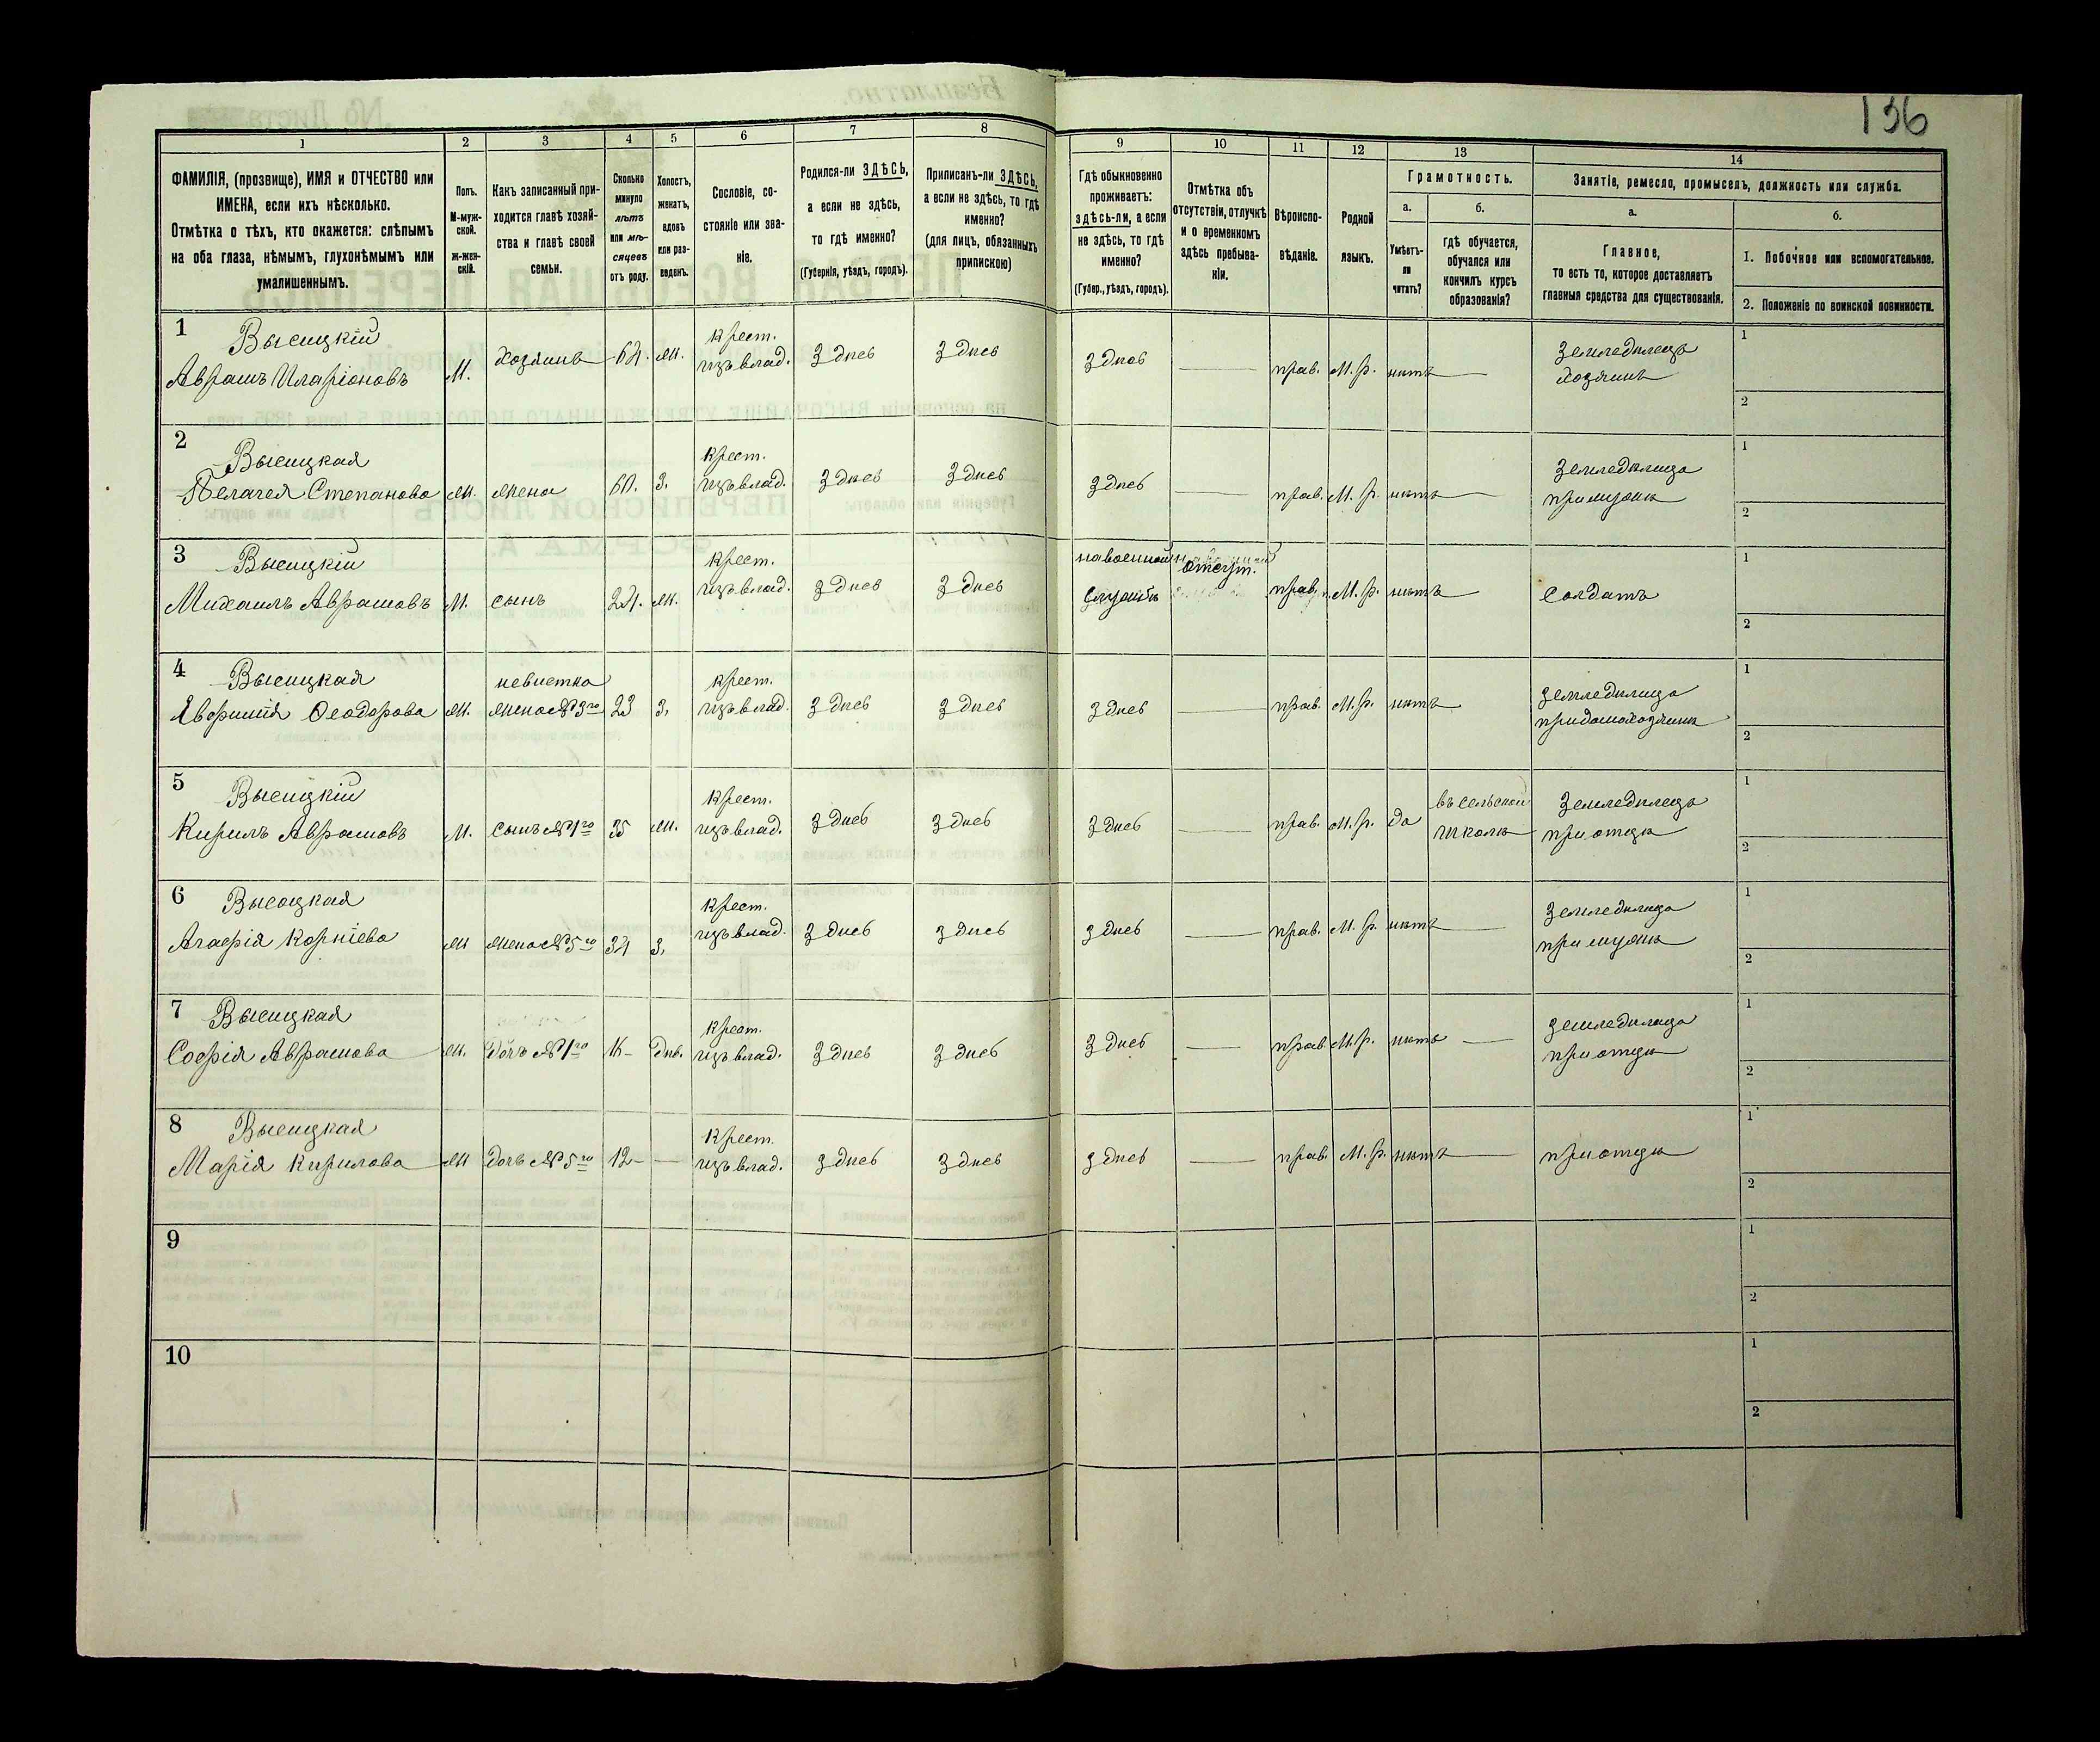 136
1 2 3 4 5 6 7 8 9 10 11 12 13 14
ФАМИЛІЯ, (прозвище), ИМЯ и ОТЧЕСТВО или ИМЕНА, если ихъ нѣсколько.
Отмѣтка о тѣхъ, кто окажется: слѣпымъ на оба глаза, нѣмымъ, глухонѣмымъ или умалишеннымъ.
Полъ. М-мужской. Ж-женскій.
Какъ записанный приходится главѣ хозяйства и главѣ своей семьи.
Сколько минуло лѣтъ или мѣсяцевъ отъ роду.
Холостъ, женатъ, вдовъ или разведенъ.
Сословіе, состояніе или званіе.
Родился-ли ЗДѢСЬ, а если не здѣсь, то гдѣ именно? (Губернія, уѣздъ, городъ).
Приписанъ-ли ЗДѢСЬ, а если не здѣсь, то гдѣ именно? (для лицъ, обязанныхъ припискою)
Гдѣ обыкновенно проживаетъ: здѣсь-ли, а если не здѣсь, то гдѣ именно? (Губер., уѣздъ, городъ).
Отмѣтка объ отсутствіи, отлучкѣ и о временномъ здѣсь пребываніи.
Вѣроисповѣданіе.
Родной языкъ.
Грамотность.
а. Умѣетъ-ли читать?
б. гдѣ обучается, обучался или кончилъ курсъ образованія?
Занятіе, ремесло, промыселъ, должность или служба.
а. Главное, то есть то, которое доставляетъ главныя средства для существованія.
б.
1. Побочное или вспомогательное.
2. Положеніе по воинской повинности.
1 Высицкій Аврамъ Иларіоновъ М. хозяинъ 64. ж. крест. изъ влад. Здѣсь Здѣсь Здѣсь — прав. М.р. нѣтъ — земледѣлецъ хозяинъ 1 2
2 Высицкая Пелагея Степанова ж. жена 60. з. крест. изъ влад. Здѣсь Здѣсь Здѣсь — прав. М.р. нѣтъ — земледѣлица при мужѣ 1 2
3 Высицкій Михаилъ Аврамовъ М. сынъ 24. ж. крест. изъ влад. Здѣсь Здѣсь на военной службѣ отсут. прав. М.р. нѣтъ — солдатъ 1 2
4 Высицкая Явфимія Ѳеодорова ж. невистка жена №3го 23 з. крест. изъ влад. Здѣсь Здѣсь Здѣсь — прав. М.р. нѣтъ — земледѣлица при домохозяинѣ 1 2
5 Высицкій Кирилъ Аврамовъ М. сынъ №1го 35 ж. крест. изъ влад. Здѣсь Здѣсь Здѣсь — прав. М.р. да въ сельской школѣ земледѣлецъ при отцѣ 1 2
6 Высоцкая Агафія Корніева ж жена №5го 34 з. крест. изъ влад. Здѣсь Здѣсь Здѣсь — прав. М.р. нѣтъ — земледѣлица при мужѣ 1 2
7 Высицкая Софія Аврамова ж. дочь №1го 16 дѣв. крест. изъ влад. Здѣсь Здѣсь Здѣсь — прав. М.р. нѣтъ — земледѣлица при отцѣ 1 2
8 Высицкая Марія Кирилова ж дочь №5го 12 — крест. изъ влад. Здѣсь Здѣсь Здѣсь — прав. М.р. нѣтъ — при отцѣ 1 2
9 1 2
10 1 2